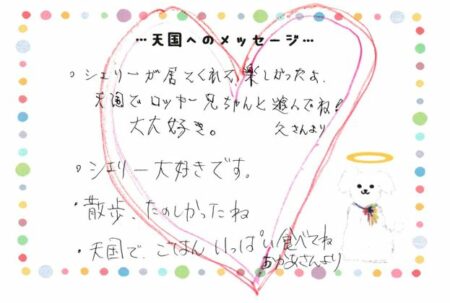 …天国へのメッセージ…
・シェリーが居てくれて楽しかったよ。
天国でロッキー兄ちゃんと遊んでね!
大大好き。 父さんより
・シェリー大好きです。
・散歩、たのしかったね
・天国で、ごはんいっぱい食べてね
おかあさんより